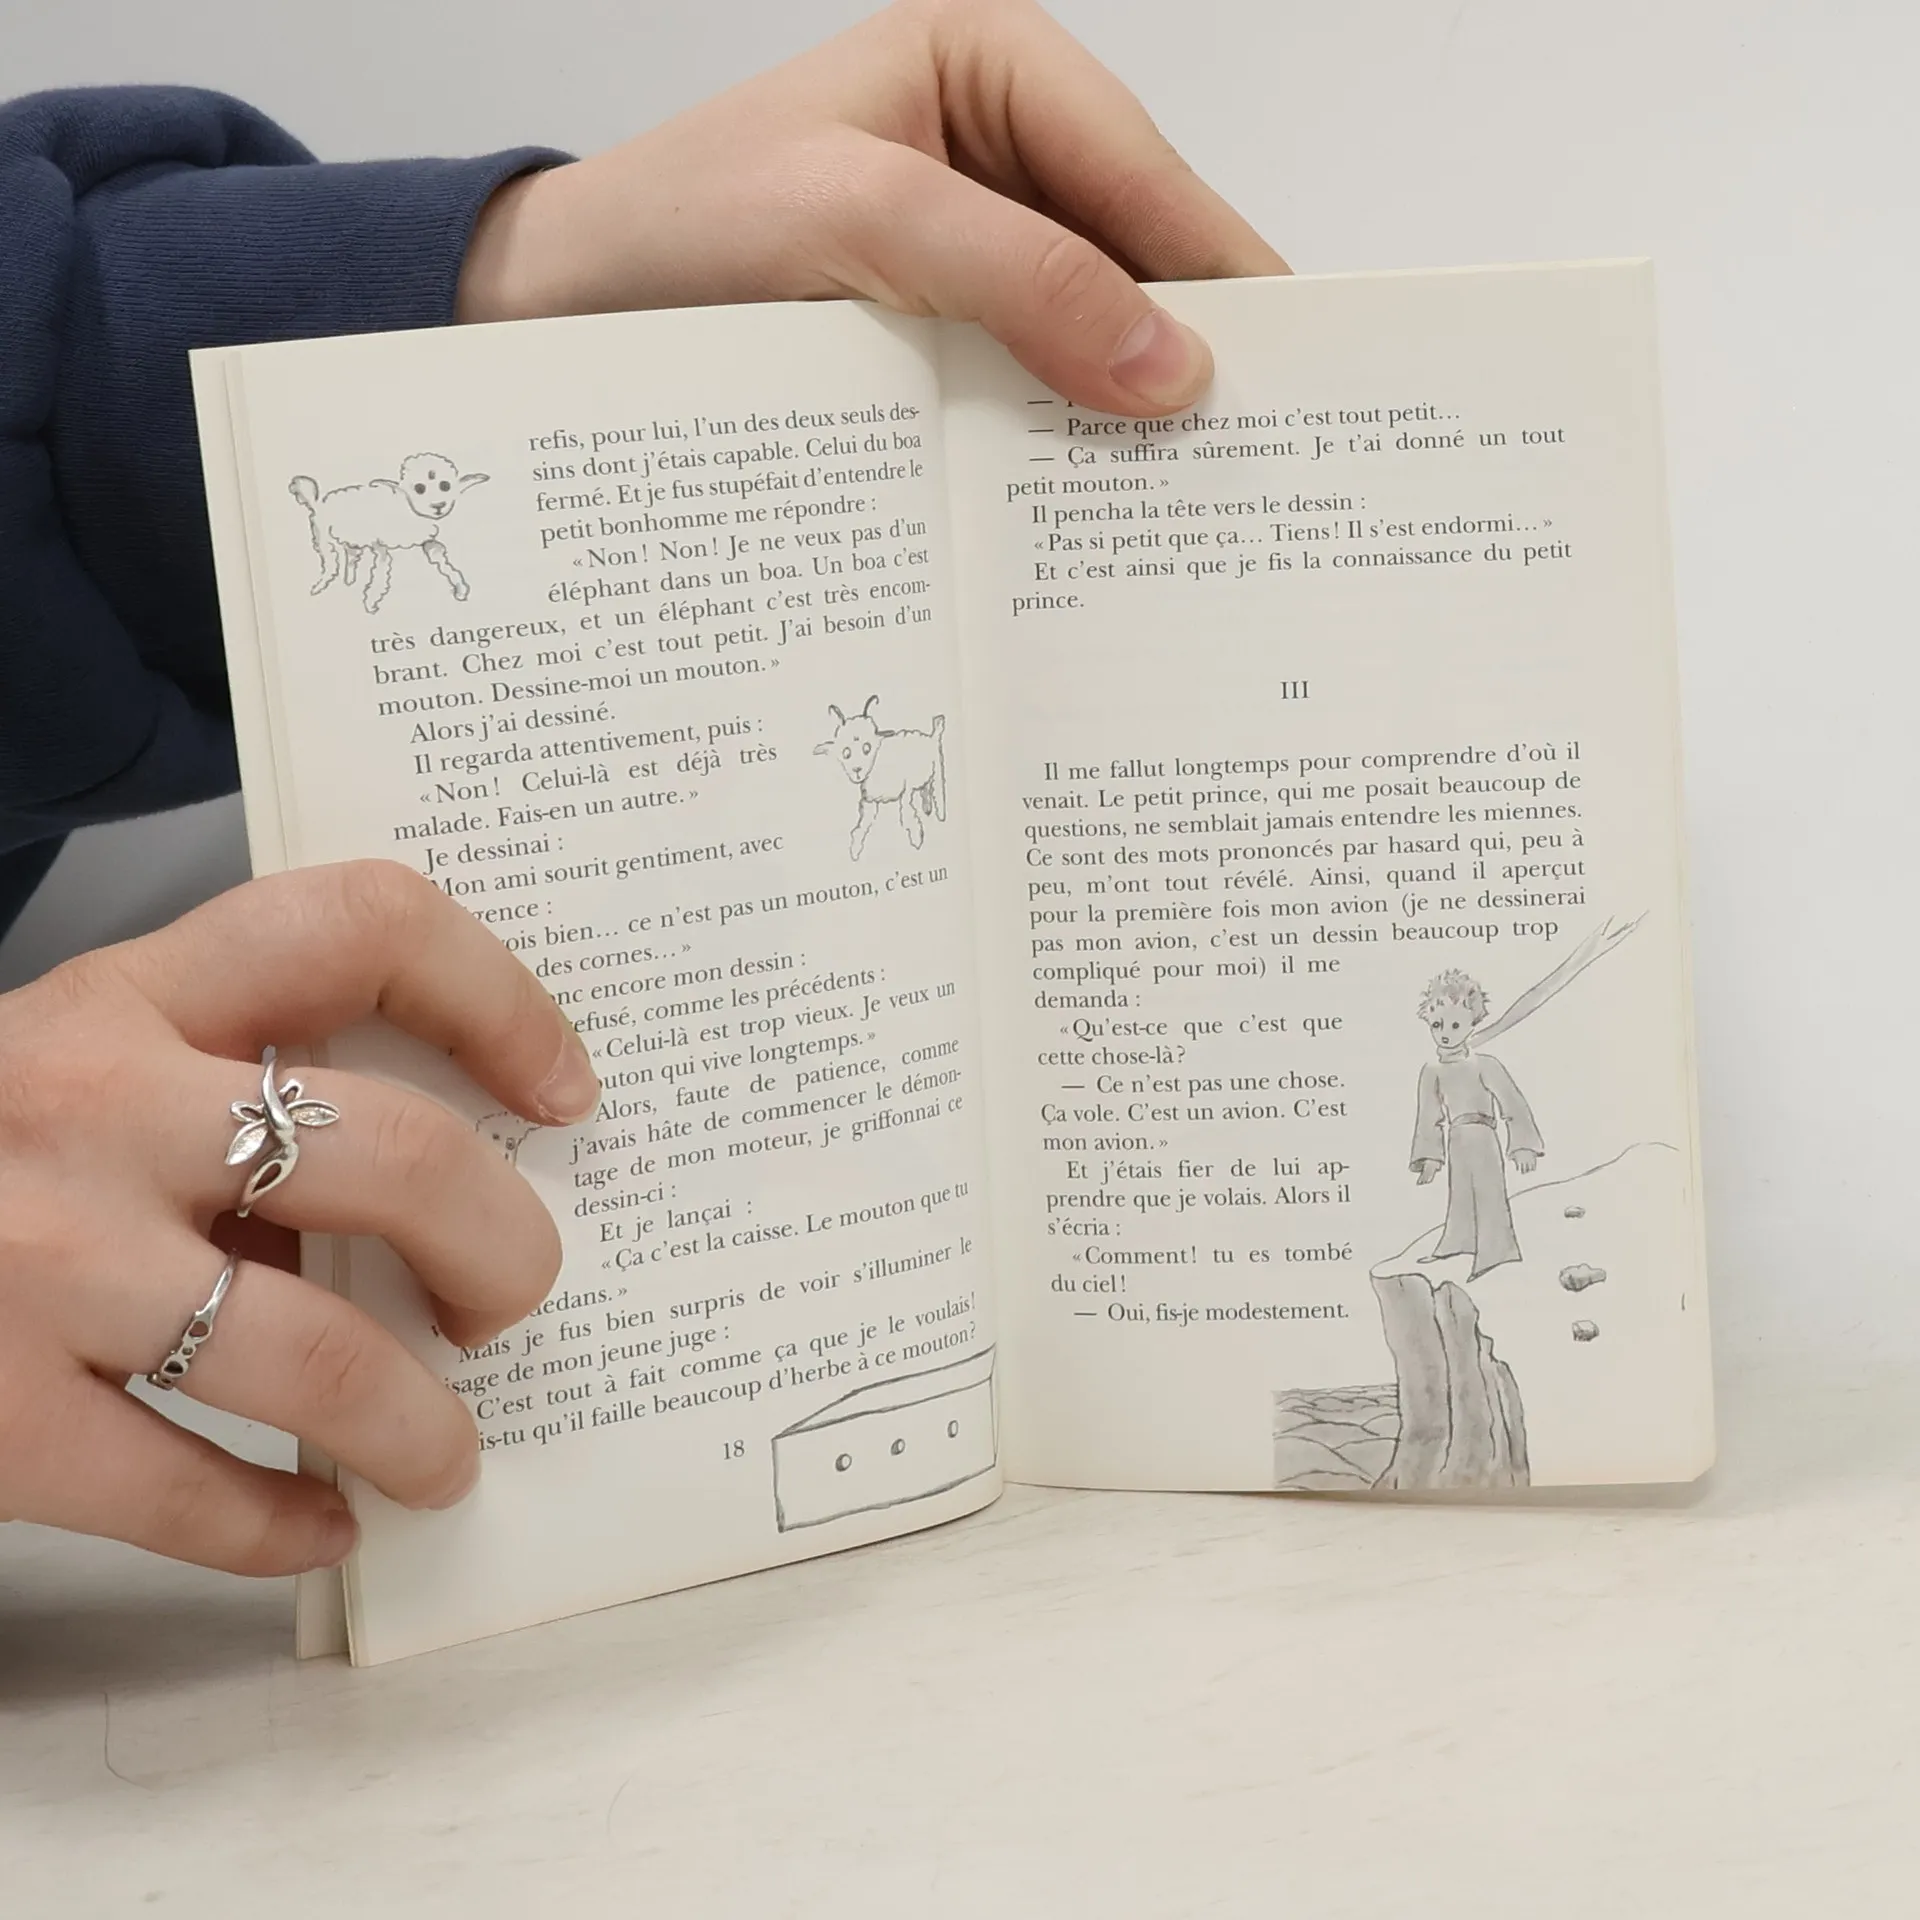 refis, pour lui, l'un des deux seuls des-
sins dont j'étais capable. Celui du boa
fermé. Et je fus stupéfait d'entendre le
petit bonhomme me répondre :
« Non ! Non ! Je ne veux pas d'un
éléphant dans un boa. Un boa c'est
très dangereux, et un éléphant c'est très encom-
brant. Chez moi c'est tout petit. J'ai besoin d'un
mouton. Dessine-moi un mouton. »
Alors j'ai dessiné.
Il regarda attentivement, puis :
« Non ! Celui-là est déjà très
malade. Fais-en un autre. »
Je dessinai :
Mon ami sourit gentiment, avec
gence :
ois bien… ce n'est pas un mouton, c'est un
des cornes… »
nc encore mon dessin :
efusé, comme les précédents :
« Celui-là est trop vieux. Je veux un
outon qui vive longtemps. »
Alors, faute de patience, comme
j'avais hâte de commencer le démon-
tage de mon moteur, je griffonnai ce
dessin-ci :
Et je lançai :
« Ça c'est la caisse. Le mouton que tu
dedans. »
Mais je fus bien surpris de voir s'illuminer le
isage de mon jeune juge :
C'est tout à fait comme ça que je le voulais !
is-tu qu'il faille beaucoup d'herbe à ce mouton ?
18
— Parce que chez moi c'est tout petit…
— Ça suffira sûrement. Je t'ai donné un tout
petit mouton. »
Il pencha la tête vers le dessin :
« Pas si petit que ça… Tiens ! Il s'est endormi… »
Et c'est ainsi que je fis la connaissance du petit
prince.
III
Il me fallut longtemps pour comprendre d'où il
venait. Le petit prince, qui me posait beaucoup de
questions, ne semblait jamais entendre les miennes.
Ce sont des mots prononcés par hasard qui, peu à
peu, m'ont tout révélé. Ainsi, quand il aperçut
pour la première fois mon avion (je ne dessinerai
pas mon avion, c'est un dessin beaucoup trop
compliqué pour moi) il me
demanda :
« Qu'est-ce que c'est que
cette chose-là ?
— Ce n'est pas une chose.
Ça vole. C'est un avion. C'est
mon avion. »
Et j'étais fier de lui ap-
prendre que je volais. Alors il
s'écria :
« Comment ! tu es tombé
du ciel !
— Oui, fis-je modestement.